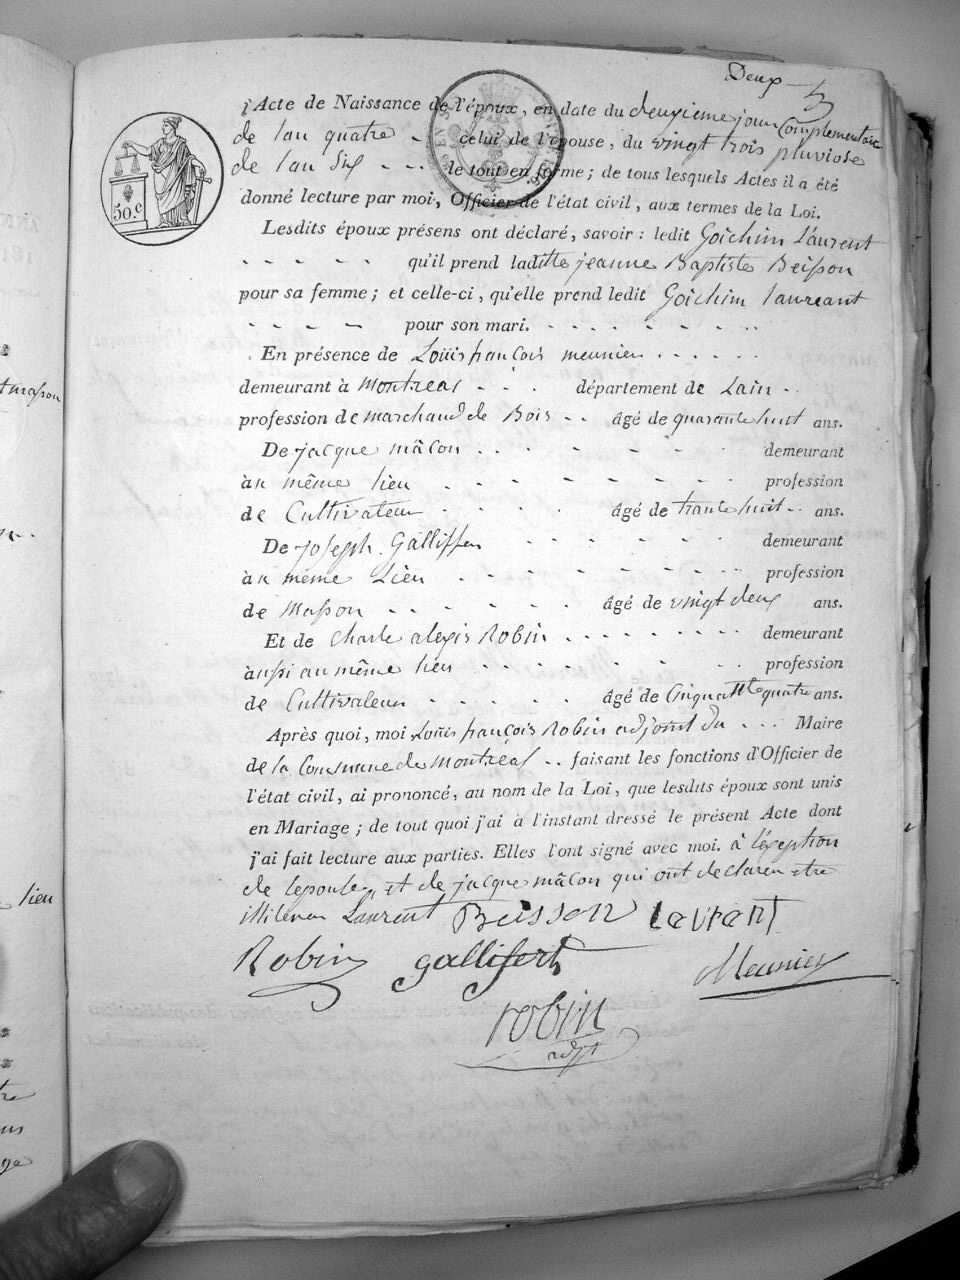 Deux
l'Acte de Naissance de l'époux, en date du deuxieme jour complementaire
de lan quatre - celui de l'épouse, du vingt trois pluviose
de lan six - - - le tout en forme; de tous lesquels Actes il a été
donné lecture par moi, Officier de l'état civil, aux termes de la Loi.
50.c
Lesdits époux présens ont déclaré, savoir : ledit Goichim Laurent
- - - - - qu'il prend laditte jeanne Baptiste Beisson
pour sa femme; et celle-ci, qu'elle prend ledit Goichim laureant
- - - - pour son mari. - - - - - - - -
En présence de Loüis françois meunier - - - - - -
demeurant à Montreal - - - département de Lain - -
profession de marchand de Bois - - âgé de quarante huit ans.
De jacque mâcon - - - - - - - demeurant
àu même lieu - - - - - - - profession
de Cultivateur - - - - - âgé de trante huit - - ans.
De joseph Galliffer - - - - - - demeurant
àu même Lieu - - - - - - - - profession
de Masson - - - - - - âgé de vingt deux ans.
Et de Charle alexis Robin - - - - - - - demeurant
àussi au même lieu - - - - - - - profession
de Cultivateur - - - - - - âgé de Cinquatte quatre ans.
Après quoi, moi Loüis françois Robin adjoint du - - - Maire
de la Commune de Montréal - - faisant les fonctions d'Officier de
l'état civil, ai prononcé, au nom de la Loi, que lesdits époux sont unis
en Mariage; de tout quoi j'ai à l'instant dressé le présent Acte dont
j'ai fait lecture aux parties. Elles l'ont signé avec moi. à léxeption
de lepouse et de jacque mâcon qui ont declaren etre
illiteren Laurent Beisson Laurant
Robin gallifert Meunier
robin
adjt